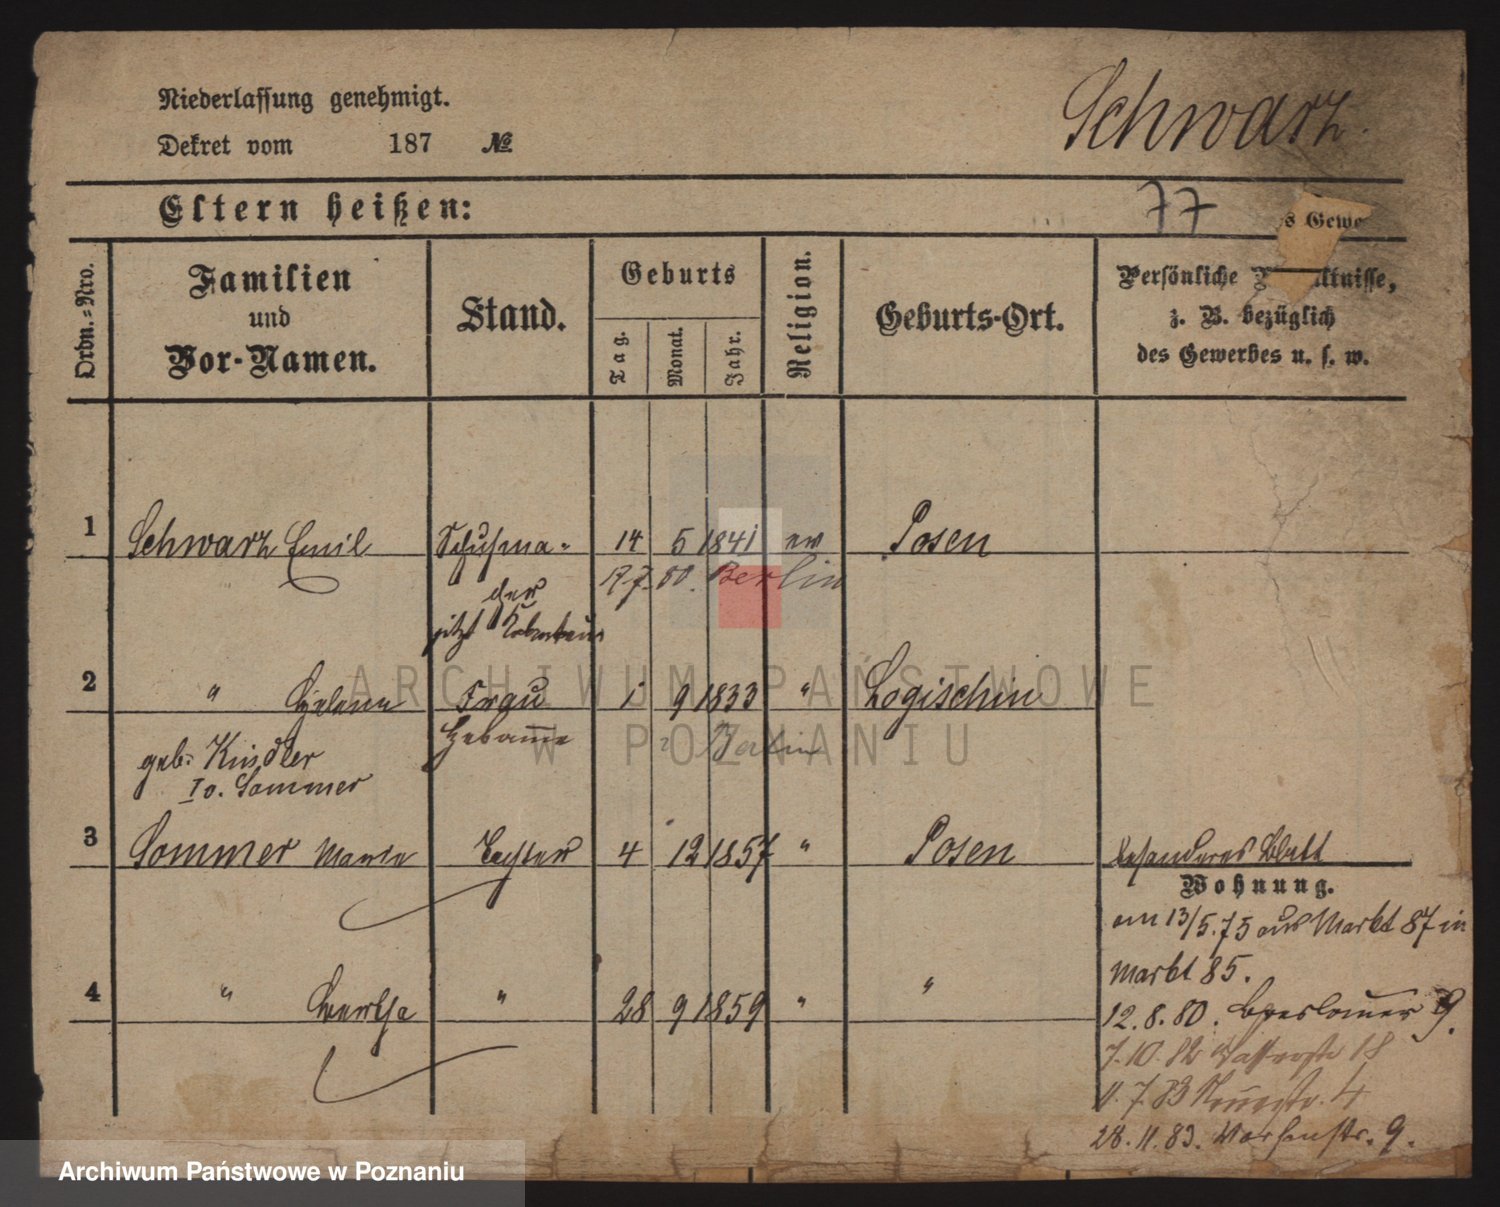 Niederlassung genehmigt.
Schwarz.
Dekret vom 187 №
Eltern heißen:
77
s Gewe
Ordn.-Nro.
Familien
und
Vor-Namen.
Stand.
Geburts
Tag.
Monat.
Jahr.
Religion.
Geburts-Ort.
Persönliche ltnisse,
z. B. bezüglich
des Gewerbes u. s. w.
1 Schwarz Emil Schuhma- 14 5 1841 ev Posen
cher Berlin
jetzt
2 " Helene Frau 1 9 1833 " Logischin
geb. Kindler Hebamme Berlin
I o. Sommer
3 Sommer Marie Tochter 4 12 1857 " Posen besonderes Blatt
Wohnung.
am 13/5.75 aus Markt 87 in
Markt 85.
4 " Bertha " 28 9 1859 " "
12.8.80. Breslauer 9.
7.10.82 Wasserstr 18
11.7.83 4
28.11.83. 9.
ARCHIWUM PAŃSTWOWE
W POZNANIU
Archiwum Państwowe w Poznaniu